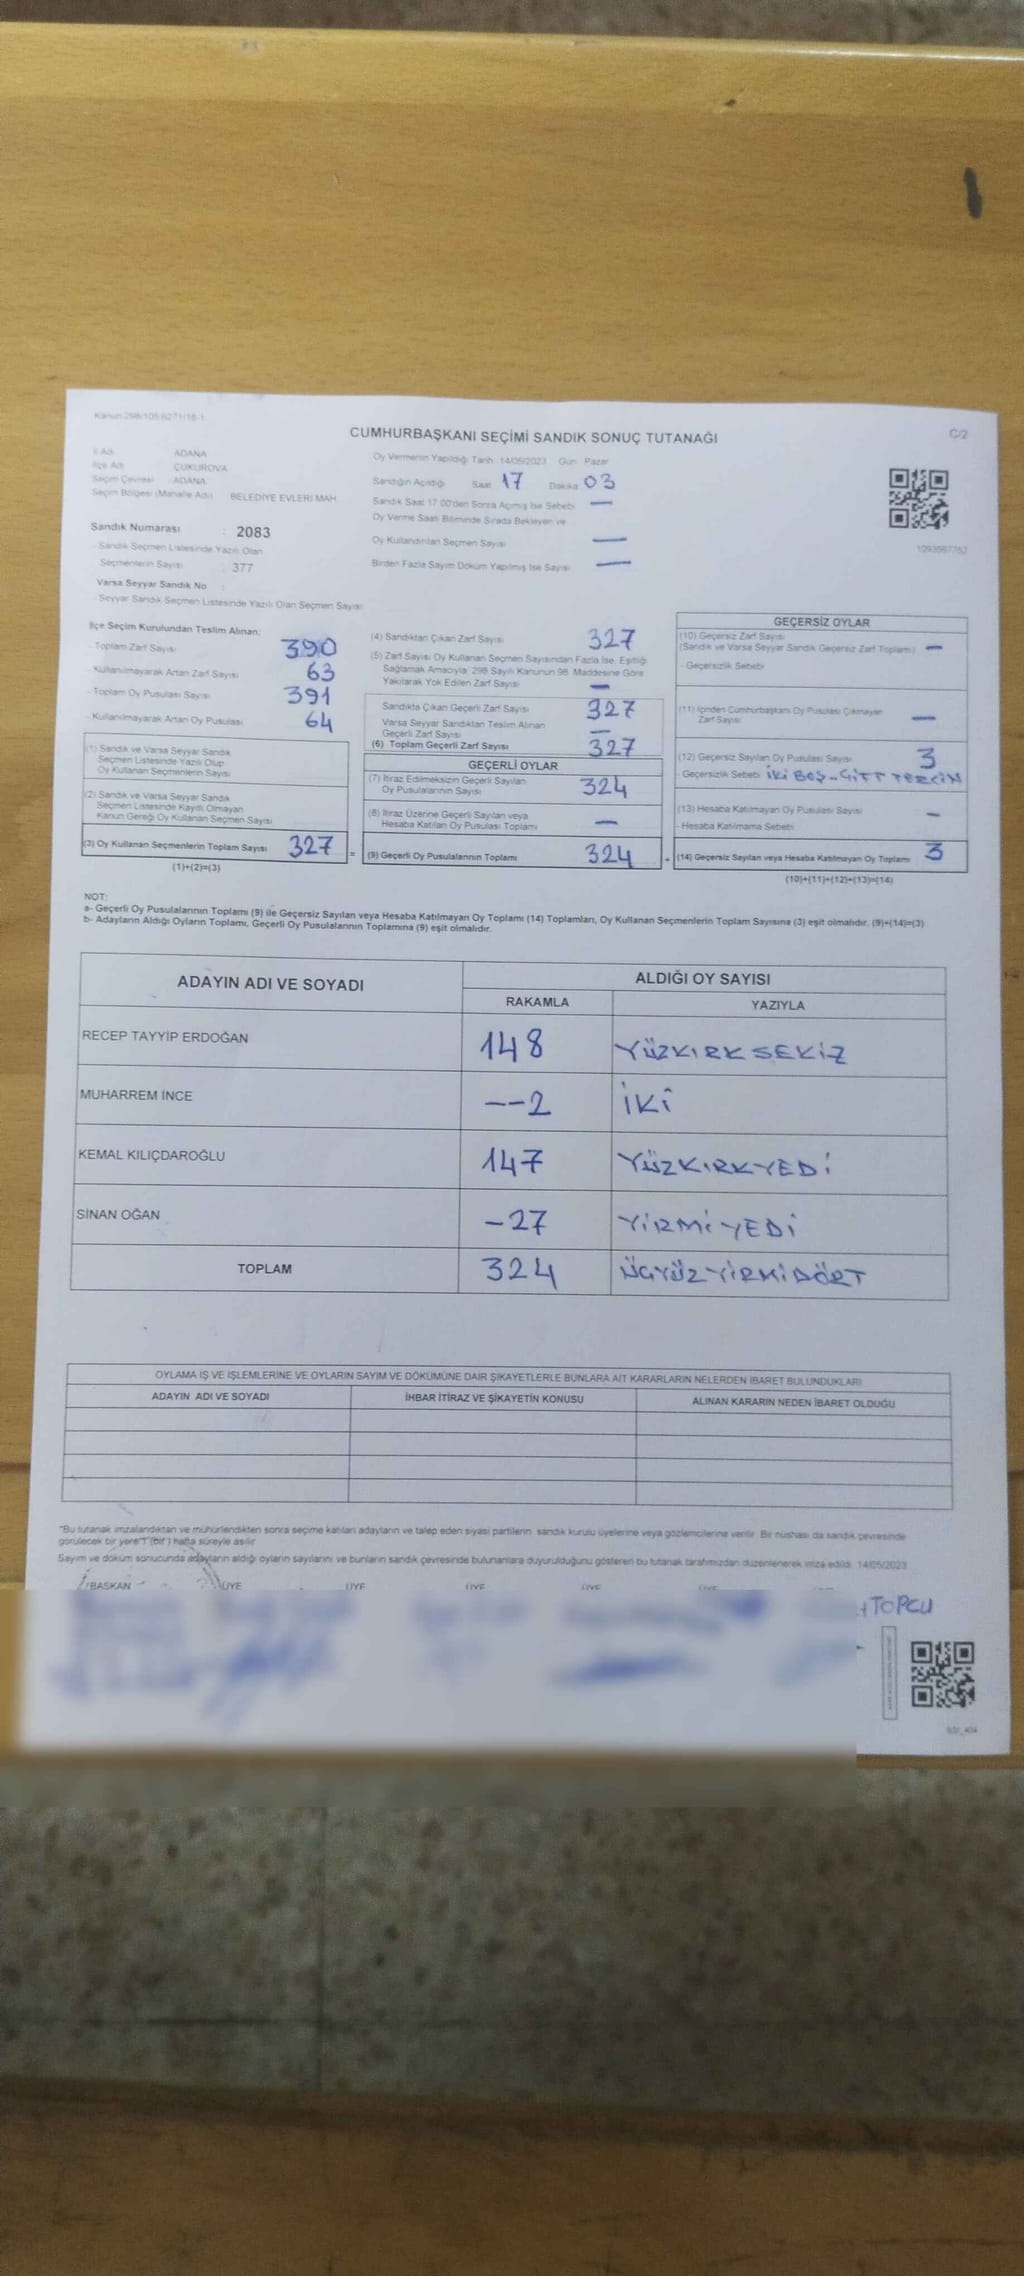 Kanun:298/105-6271/18-1
C/2
CUMHURBAŞKANI SEÇİMİ SANDIK SONUÇ TUTANAĞI
İl Adı ADANA
İlçe Adı ÇUKUROVA
Seçim Çevresi ADANA
Seçim Bölgesi (Mahalle Adı) BELEDİYE EVLERİ MAH
Sandık Numarası : 2083
- Sandık Seçmen Listesinde Yazılı Olan
Seçmenlerin Sayısı : 377
Varsa Seyyar Sandık No :
- Seyyar Sandık Seçmen Listesinde Yazılı Olan Seçmen Sayısı
Oy Vermenin Yapıldığı Tarih 14/05/2023 Gün Pazar
Sandığın Açıldığı Saat 17 Dakika 03
Sandık Saat 17:00'den Sonra Açılmış İse Sebebi —
Oy Verme Saati Bitiminde Sırada Bekleyen ve
Oy Kullandırılan Seçmen Sayısı —
Birden Fazla Sayım Döküm Yapılmış İse Sayısı —
1093567752
İlçe Seçim Kurulundan Teslim Alınan;
- Toplam Zarf Sayısı 390
- Kullanılmayarak Artan Zarf Sayısı 63
- Toplam Oy Pusulası Sayısı 391
- Kullanılmayarak Artan Oy Pusulası 64
(1) Sandık ve Varsa Seyyar Sandık
Seçmen Listesinde Yazılı Olup
Oy Kullanan Seçmenlerin Sayısı
(2) Sandık ve Varsa Seyyar Sandık
Seçmen Listesinde Kayıtlı Olmayan
Kanun Gereği Oy Kullanan Seçmen Sayısı
(3) Oy Kullanan Seçmenlerin Toplam Sayısı 327 =
(1)+(2)=(3)
(4) Sandıktan Çıkan Zarf Sayısı 327
(5) Zarf Sayısı Oy Kullanan Seçmen Sayısından Fazla İse, Eşitliği
Sağlamak Amacıyla; 298 Sayılı Kanunun 98. Maddesine Göre
Yakılarak Yok Edilen Zarf Sayısı —
Sandıkta Çıkan Geçerli Zarf Sayısı 327
Varsa Seyyar Sandıktan Teslim Alınan
Geçerli Zarf Sayısı —
(6) Toplam Geçerli Zarf Sayısı 327
GEÇERLİ OYLAR
(7) İtiraz Edilmeksizin Geçerli Sayılan
Oy Pusulalarının Sayısı 324
(8) İtiraz Üzerine Geçerli Sayılan veya
Hesaba Katılan Oy Pusulası Toplamı —
(9) Geçerli Oy Pusulalarının Toplamı 324 +
GEÇERSİZ OYLAR
(10) Geçersiz Zarf Sayısı
(Sandık ve Varsa Seyyar Sandık Geçersiz Zarf Toplamı) —
- Geçersizlik Sebebi
(11) İçinden Cumhurbaşkanı Oy Pusulası Çıkmayan
Zarf Sayısı —
(12) Geçersiz Sayılan Oy Pusulası Sayısı 3
- Geçersizlik Sebebi İKİ BOŞ - ÇİFT TERCİH
(13) Hesaba Katılmayan Oy Pusulası Sayısı —
- Hesaba Katılmama Sebebi
(14) Geçersiz Sayılan veya Hesaba Katılmayan Oy Toplamı 3
(10)+(11)+(12)+(13)=(14)
NOT:
a- Geçerli Oy Pusulalarının Toplamı (9) ile Geçersiz Sayılan veya Hesaba Katılmayan Oy Toplamı (14) Toplamları, Oy Kullanan Seçmenlerin Toplam Sayısına (3) eşit olmalıdır. (9)+(14)=(3)
b- Adayların Aldığı Oyların Toplamı, Geçerli Oy Pusulalarının Toplamına (9) eşit olmalıdır.
ADAYIN ADI VE SOYADI ALDIĞI OY SAYISI
RAKAMLA YAZIYLA
RECEP TAYYİP ERDOĞAN 148 YÜZKIRKSEKİZ
MUHARREM İNCE --2 İKİ
KEMAL KILIÇDAROĞLU 147 YÜZKIRKYEDİ
SİNAN OĞAN -27 YİRMİYEDİ
TOPLAM 324 ÜÇYÜZYİRMİDÖRT
OYLAMA İŞ VE İŞLEMLERİNE VE OYLARIN SAYIM VE DÖKÜMÜNE DAİR ŞİKAYETLERLE BUNLARA AİT KARARLARIN NELERDEN İBARET BULUNDUKLARI
ADAYIN ADI VE SOYADI İHBAR İTİRAZ VE ŞİKAYETİN KONUSU ALINAN KARARIN NEDEN İBARET OLDUĞU
"Bu tutanak imzalandıktan ve mühürlendikten sonra seçime katılan adayların ve talep eden siyasi partilerin sandık kurulu üyelerine veya gözlemcilerine verilir. Bir nüshası da sandık çevresinde
görülecek bir yere "1 (bir)" hafta süreyle asılır
Sayım ve döküm sonucunda adayların aldığı oyların sayılarını ve bunların sandık çevresinde bulunanlara duyurulduğunu gösteren bu tutanak tarafımızdan düzenlenerek imza edildi. 14/05/2023
BAŞKAN ÜYE ÜYE ÜYE ÜYE ÜYE
TOPCU